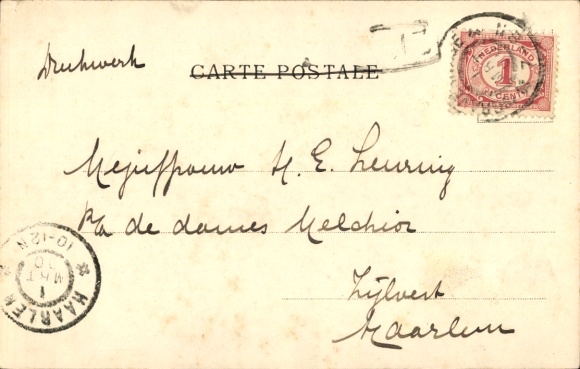 Drukwerk
CARTE POSTALE
NEDERLAND
1
CENT
Mejuffrouw H. E. Leuring
P/a de dames Melchior
Zijlvest
Haarlem
HAARLEM
10-12N
1